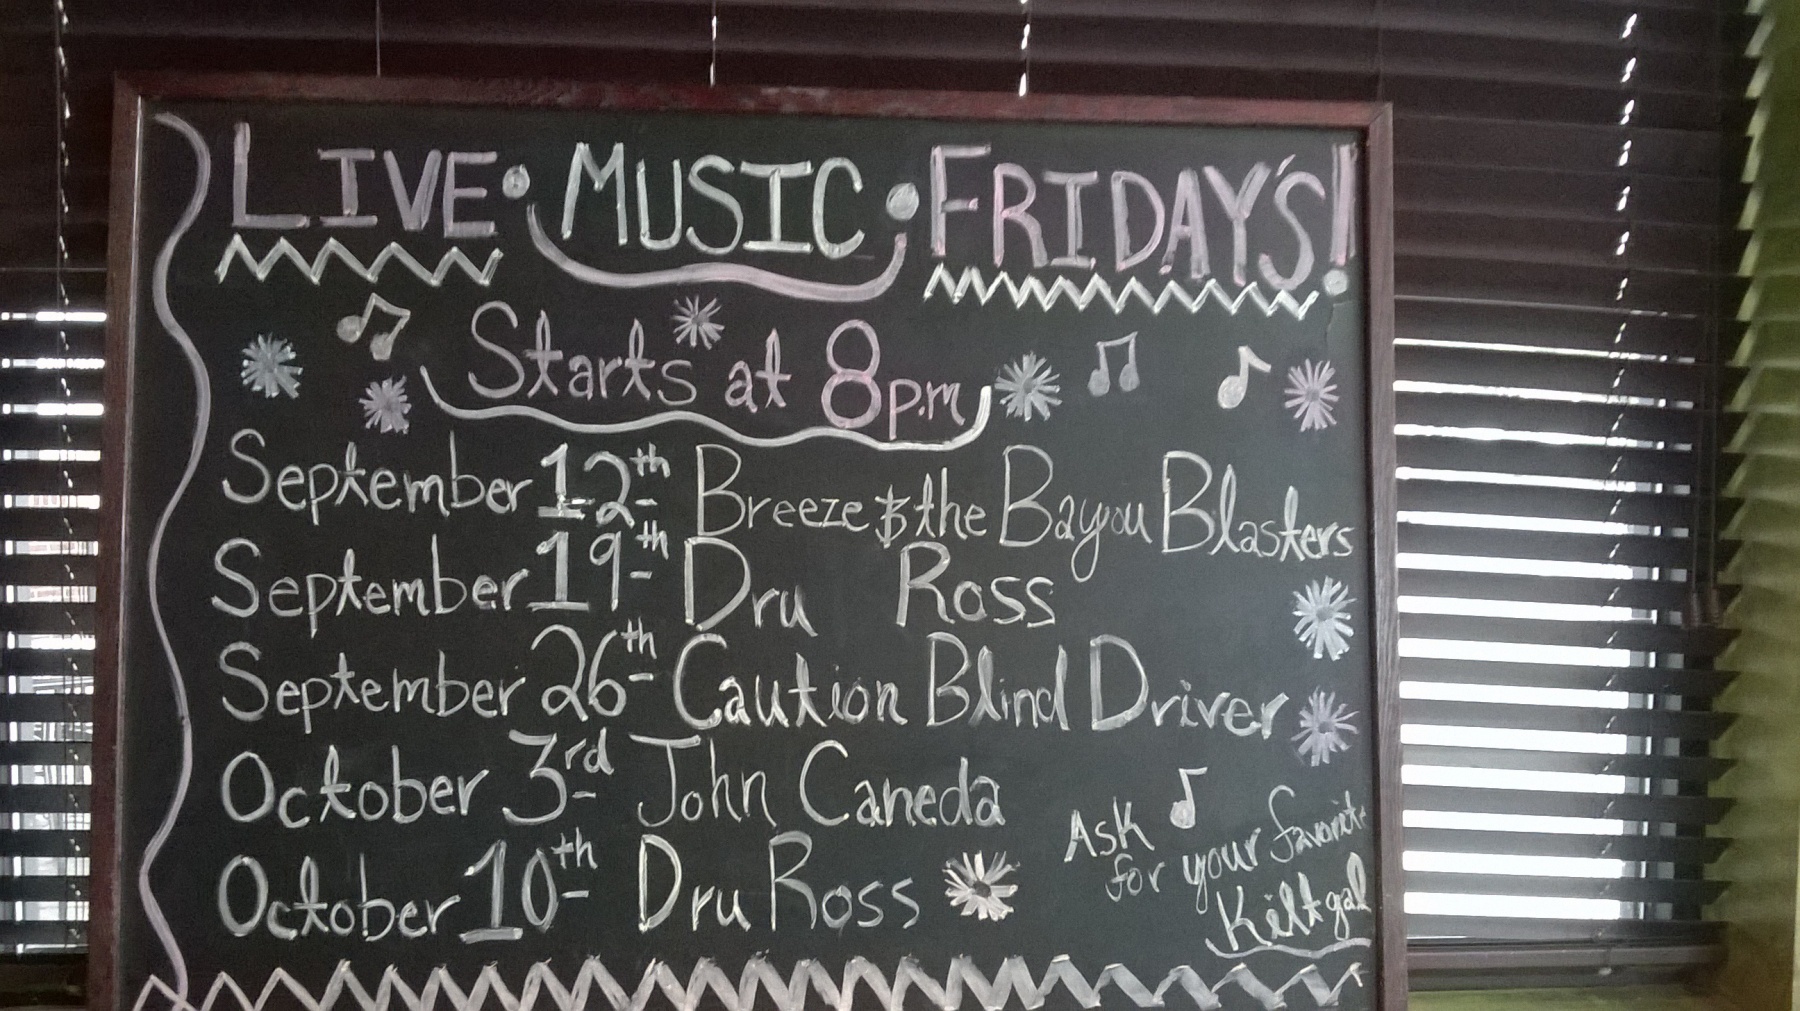 LIVE • MUSIC • FRIDAY'S!
Starts at 8p.m
September 12th Breeze & the Bayou Blasters
September 19th Dru Ross
September 26th Caution Blind Driver
October 3rd John Caneda
October 10th Dru Ross
Ask
for your favorite
Kilt gal